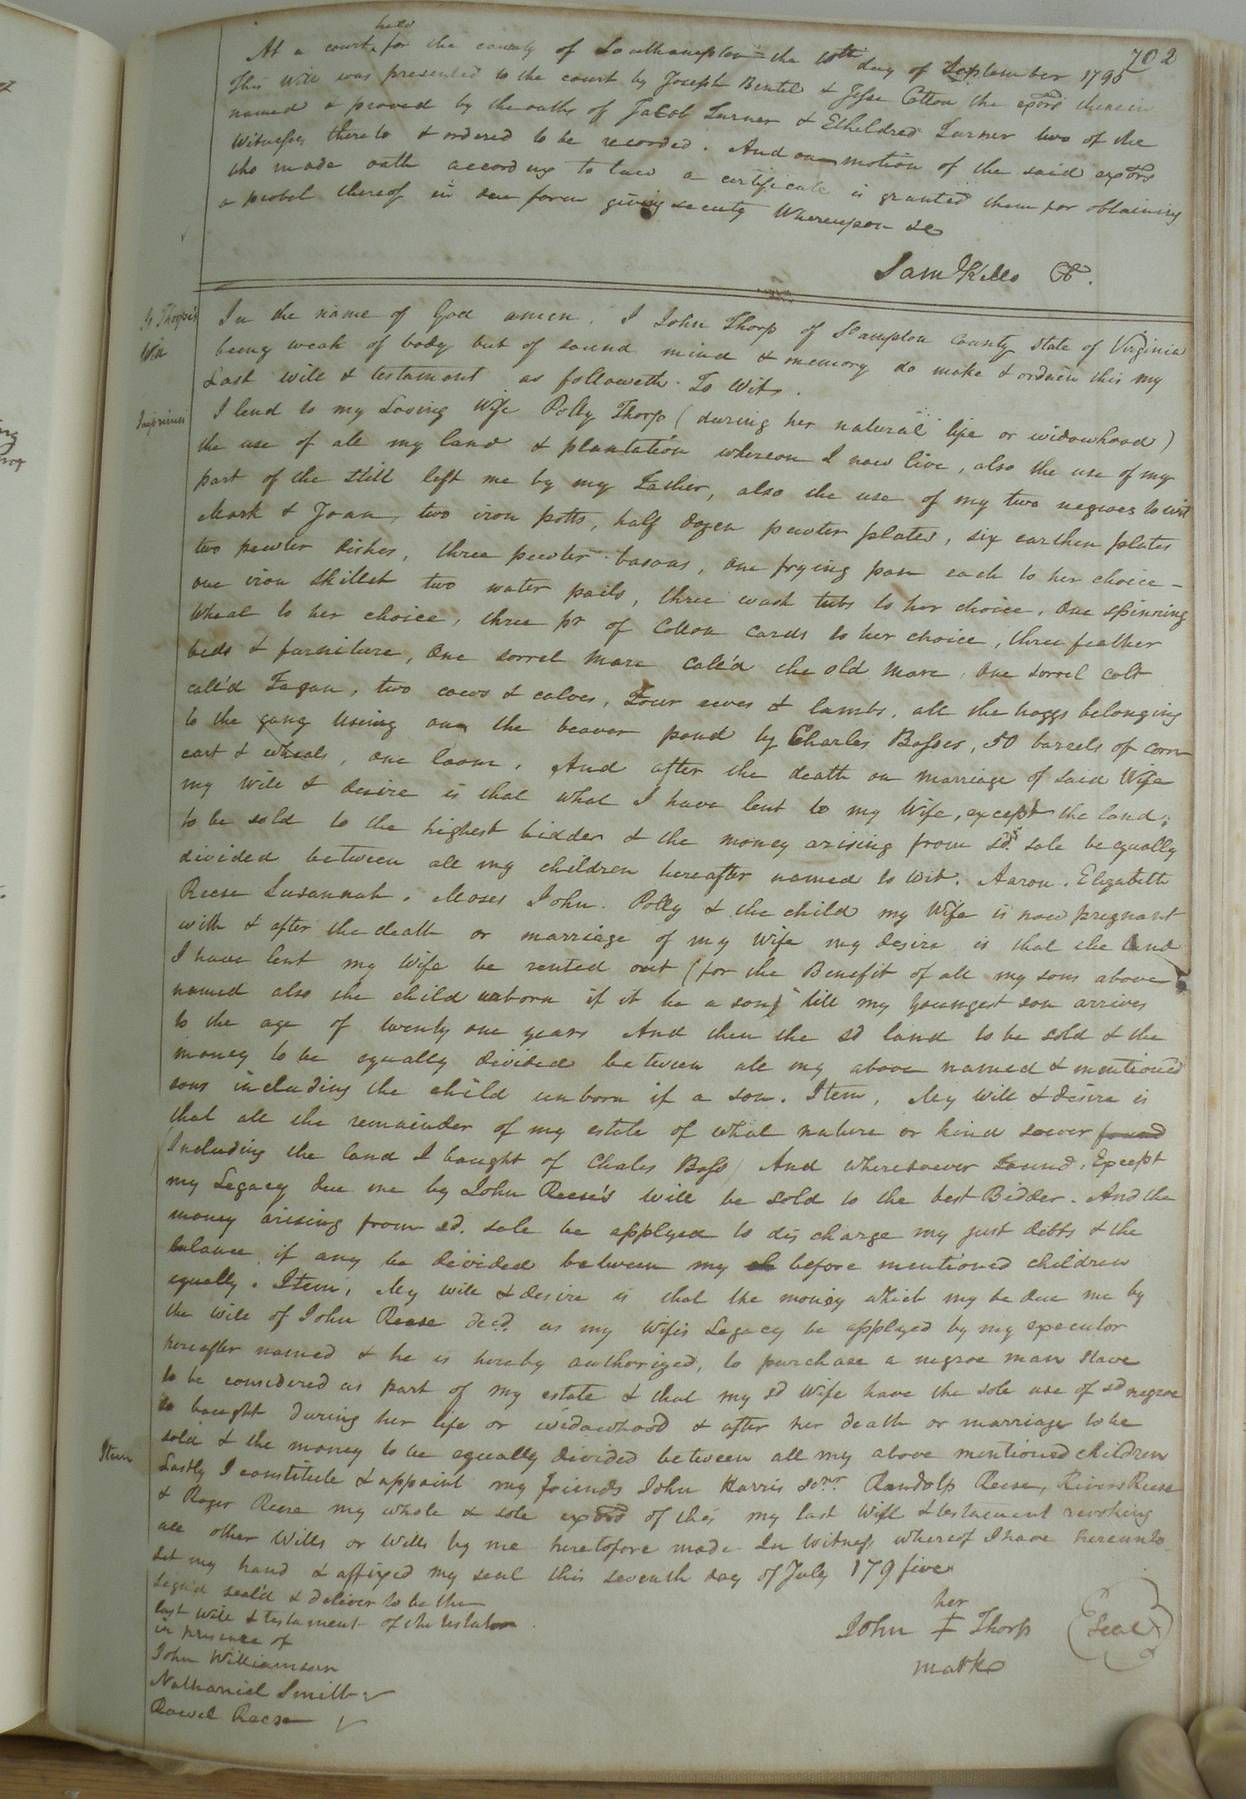 702
At a court held for the county of Southampton the 10th day of September 1795
This will was presented to the court by Joseph Bentel & Jesse Cotton the exors therein
named & proved by the oaths of Jacob Turner & Etheldred Turner two of the
Witnesses thereto & ordered to be recorded. And on motion of the said exors
who made oath according to law a certificate is granted them for obtaining
a probet thereof in due form giving security Whereupon &c
Saml Kello Ct.
Jn Thorps
Will
In the name of God amen. I John Thorp of So.ampton County State of Virginia
being weak of body but of sound mind & memory do make & ordain this my
Last will & testament as followeth To Wit.
Imprimis
I lend to my Loving Wife Polly Thorp (during her natural life or widowhood)
the use of all my land & plantation whereon I now live, also the use of my
part of the Still left me by my Father, also the use of my two negroes to wit
Mark & Joan, two iron potts, half dozen pewter plates, six earthen plates
two pewter dishes, three pewter basons, one frying pan each to her choice -
one iron Skillet two water pails, three wash tubs to her choice, One Spinning
Wheal to her choice, three pr of Cotton Cards to her choice, three feather
beds & furniture, One sorrel mare call'd the old mare, One sorrel colt
call'd Fagan, two cows & calves, Four ewes & lambs, all the hoggs belonging
to the gang useing on the beaver pond by Charles Basses, 50 barrels of corn
cart & wheals, one loom, And after the death or marriage of said Wife
my Will & desire is that what I have lent to my Wife, except the land,
to be sold to the highest bidder & the money arising from sd sale be equally
divided between all my children hereafter named to wit. Aaron. Elizabeth
Reese Susannah. Moses John. Polly & the child my Wife is now pregnant
with & after the death or marriage of my Wife my desire is that the land
I have lent my Wife be rented out (for the Benefit of all my sons above
named also the child unborn if it be a son) till my youngest son arrives
to the age of twenty one years And then the sd land to be sold & the
money to be equally divided between all my above named & mentioned
sons including the child unborn if a son. Item, My Will & desire is
that all the remainder of my estate of what nature or kind soever found
Including the land I bought of Chales Bass, And wheresoever Found, Except
my Legacy due me by John Reese's Will be sold to the best Bidder. And the
money arising from sd. sale be applyed to discharge my just debts & the
balance if any be divided between my before mentioned children
equally. Item, My will & desire is that the money which my be due me by
the will of John Reese decd. as my Wifes Legacy be applyed by my executor
hereafter named & he is hereby authorized, to purchase a negroe man slave
to be considered as part of my estate & that my sd Wife have the sole use of sd negroe
so bought during her life or widowhood & after her death or marriage to be
sold & the money to be equally divided between all my above mentioned children
Item
Lastly I constitute & appoint my friends John Harris senr. Randolp Reese, Rivers Reese
& Roger Reese my whole & sole exors of this my last Will & testament revoking
all other Wills or Wills by me heretofore made In Witness whereof I have hereunto
set my hand & affixed my seal this seventh day of July 179five
Sign'd seal'd & deliver to be the
last will & testament of the testator
in presence of
John Williamson
Nathaniel Smith
Rowel Reese
her
John Ŧ Thorp (Seal)
mark